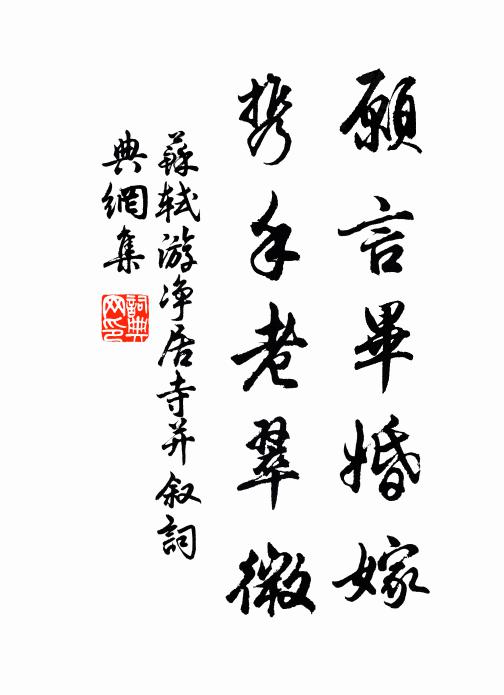 願言畢婚嫁
攜手老翠微
蘇軾游净居寺并叙詞
典網集
詞典网印